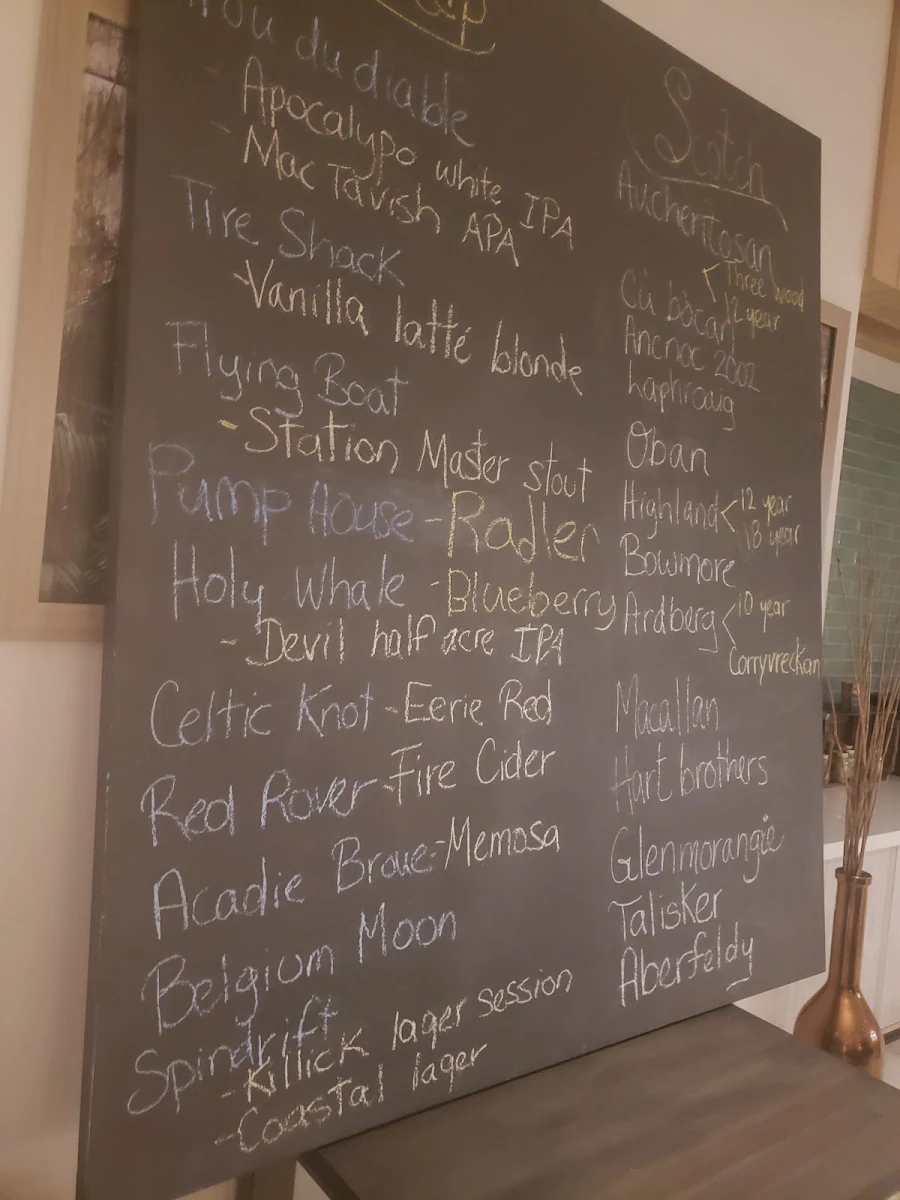 du diable
- Apocalypo white IPA
- Mac Tavish APA
Tire Shack
- Vanilla latté blonde
Flying Boat
- Station Master stout
Pump House - Radler
Holy Whale - Blueberry
- Devil half acre IPA
Celtic Knot - Eerie Red
Red Rover - Fire Cider
Acadie Broue - Memosa
Belgium Moon
Spindrift
- Killick lager session
- Coastal lager
Scotch
Auchentosan
Three wood
12 year
Cù bòcan
Ancnoc 2002
Laphroaug
Oban
Highland < 12 year
18 year
Bowmore
Ardberg < 10 year
Corryvreckan
Macallan
Hart brothers
Glenmorangie
Talisker
Aberfeldy